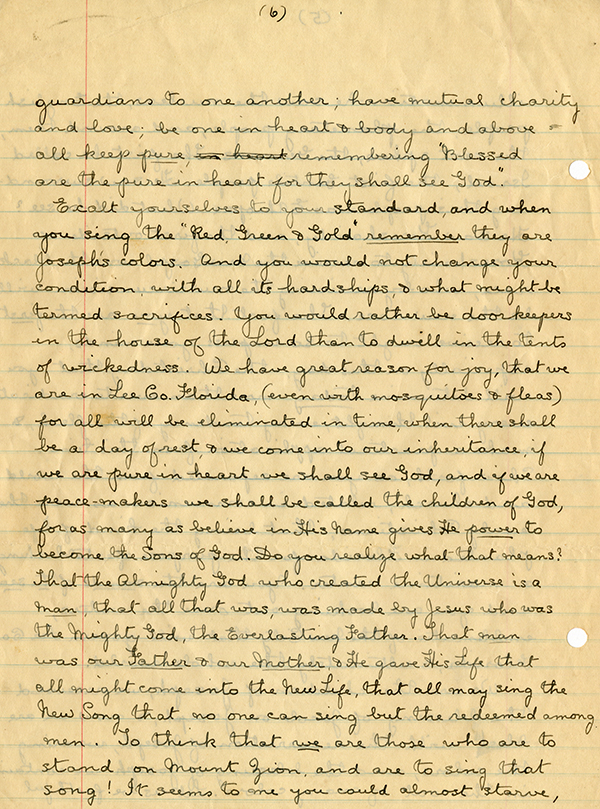 (6)
guardians to one another; have mutual charity
and love; be one in heart & body and above
all keep pure, in heart remembering "Blessed
are the pure in heart for they shall see God".
Exalt yourselves to your standard, and when
you sing the "Red, Green & Gold" remember they are
Joseph's colors. And you would not change your
condition, with all its hardships, & what might be
termed sacrifices. You would rather be doorkeepers
in the house of the Lord than to dwell in the tents
of wickedness. We have great reason for joy, that we
are in Lee Co. Florida, (even with mosquitoes & fleas)
for all will be eliminated in time, when there shall
be a day of rest, & we come into our inheritance, if
we are pure in heart we shall see God, and if we are
peace-makers we shall be called the children of God,
for as many as believe in His Name gives He power to
become the Sons of God. Do you realize what that means?
That the Almighty God who created the Universe is a
man, that all that was, was made by Jesus who was
the Mighty God, the Everlasting Father. That man
was our Father & our Mother, & He gave His Life that
all might come into the New Life, that all may sing the
New Song that no one can sing but the redeemed among
men. To think that we are those who are to
stand on Mount Zion, and are to sing that
song! It seems to me you could almost starve,